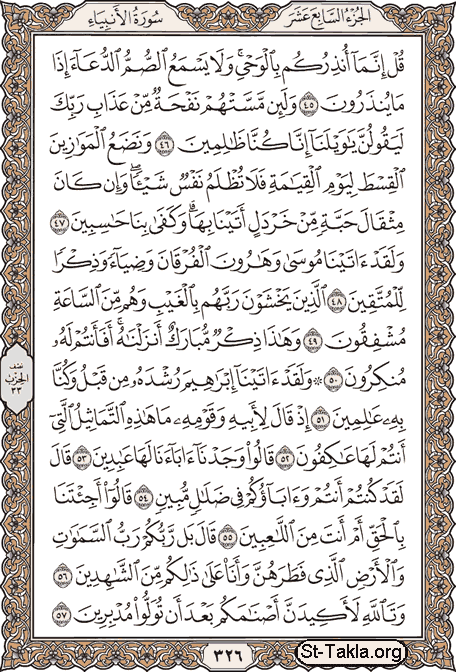 الجزء السابع عشر
سورة الأنبياء
قُلْ إِنَّمَآ أُنذِرُكُم بِٱلْوَحْىِ ۚ وَلَا يَسْمَعُ ٱلصُّمُّ ٱلدُّعَآءَ إِذَا
مَا يُنذَرُونَ ٤٥ وَلَئِن مَّسَّتْهُمْ نَفْحَةٌ مِّنْ عَذَابِ رَبِّكَ
لَيَقُولُنَّ يَٰوَيْلَنَآ إِنَّا كُنَّا ظَٰلِمِينَ ٤٦ وَنَضَعُ ٱلْمَوَٰزِينَ
ٱلْقِسْطَ لِيَوْمِ ٱلْقِيَٰمَةِ فَلَا تُظْلَمُ نَفْسٌ شَيْـًٔا ۖ وَإِن كَانَ
مِثْقَالَ حَبَّةٍ مِّنْ خَرْدَلٍ أَتَيْنَا بِهَا ۗ وَكَفَىٰ بِنَا حَٰسِبِينَ ٤٧
وَلَقَدْ ءَاتَيْنَا مُوسَىٰ وَهَٰرُونَ ٱلْفُرْقَانَ وَضِيَآءً وَذِكْرًا
لِّلْمُتَّقِينَ ٤٨ ٱلَّذِينَ يَخْشَوْنَ رَبَّهُم بِٱلْغَيْبِ وَهُم مِّنَ ٱلسَّاعَةِ
مُشْفِقُونَ ٤٩ وَهَٰذَا ذِكْرٌ مُّبَارَكٌ أَنزَلْنَٰهُ ۚ أَفَأَنتُمْ لَهُۥ
مُنكِرُونَ ٥٠ ۞ وَلَقَدْ ءَاتَيْنَآ إِبْرَٰهِيمَ رُشْدَهُۥ مِن قَبْلُ وَكُنَّا
بِهِۦ عَٰلِمِينَ ٥١ إِذْ قَالَ لِأَبِيهِ وَقَوْمِهِۦ مَا هَٰذِهِ ٱلتَّمَاثِيلُ ٱلَّتِىٓ
أَنتُمْ لَهَا عَٰكِفُونَ ٥٢ قَالُوا۟ وَجَدْنَآ ءَابَآءَنَا لَهَا عَٰبِدِينَ ٥٣ قَالَ
لَقَدْ كُنتُمْ أَنتُمْ وَءَابَآؤُكُمْ فِى ضَلَٰلٍ مُّبِينٍ ٥٤ قَالُوٓا۟ أَجِئْتَنَا
بِٱلْحَقِّ أَمْ أَنتَ مِنَ ٱللَّٰعِبِينَ ٥٥ قَالَ بَل رَّبُّكُمْ رَبُّ ٱلسَّمَٰوَٰتِ
وَٱلْأَرْضِ ٱلَّذِى فَطَرَهُنَّ وَأَنَا۠ عَلَىٰ ذَٰلِكُم مِّنَ ٱلشَّٰهِدِينَ ٥٦
وَتَٱللَّهِ لَأَكِيدَنَّ أَصْنَٰمَكُم بَعْدَ أَن تُوَلُّوا۟ مُدْبِرِينَ ٥٧
نصف
الحزب
٣٣
٣٢٦
St-Takla.org